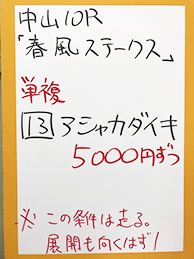 中山10R
「春風ステークス」
単複
13アシャカダイキ
5000円ずつ
※この条件は走る。
展開も向くはず!